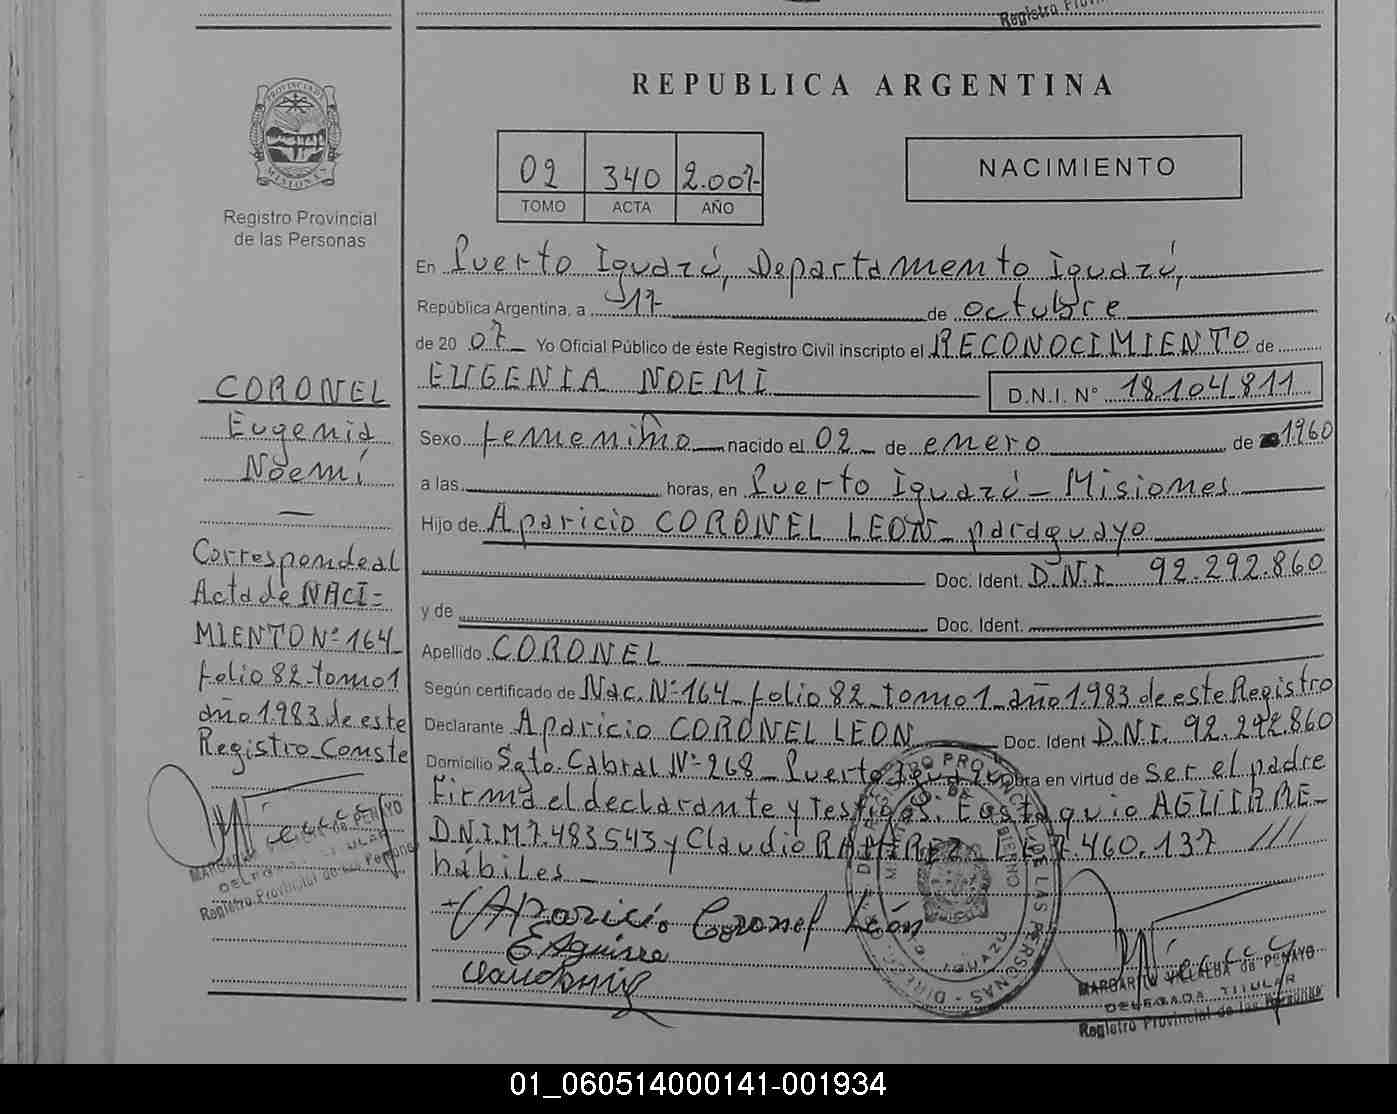 Registro
REPUBLICA ARGENTINA
PROVINCIA DE
MISIONES
Registro Provincial
de las Personas
02 340 2.007-
TOMO ACTA AÑO
NACIMIENTO
En Puerto Iguazú, Departamento Iguazú,
República Argentina, a 17 de octubre
de 20 07 Yo Oficial Público de éste Registro Civil inscripto el RECONOCIMIENTO de
EUGENIA NOEMI D.N.I. Nº 18.104.811
Sexo femenino nacido el 02 de enero de 1960
a las horas, en Puerto Iguazú - Misiones
Hijo de Aparicio CORONEL LEON paraguayo
Doc. Ident. D.N.I. 92.292.860
y de Doc. Ident.
Apellido CORONEL
Según certificado de Nac. Nº 164 folio 82 tomo 1 año 1.983 de este Registro
Declarante Aparicio CORONEL LEON Doc. Ident D.N.I. 92.292.860
Domicilio Sgto. Cabral Nº 268 - Puerto Iguazú Obra en virtud de ser el padre
Firma el declarante y testigos. Eustaquio AGUIRRE
D.N.I.M 7.483543 y Claudio RAMIREZ L.E 7.460.137 ///
hábiles
CORONEL
Eugenia
Noemí
Corresponde al
Acta de NACI=
MIENTO Nº 164
folio 82 tomo 1
año 1.983 de este
Registro Conste
DELEGADA TITULAR
Registro Provincial de las Personas
Aparicio Coronel León
E Aguirre
MARGARITA VILLALBA de PENAYO
DELEGADA TITULAR
Registro Provincial de las Personas
01_060514000141-001934